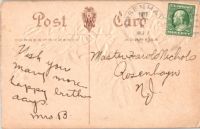 Post Card
Wish you
many more
happy birth
days.
Mrs B
Master Harold Nichols
Rosenhayn
N.J.